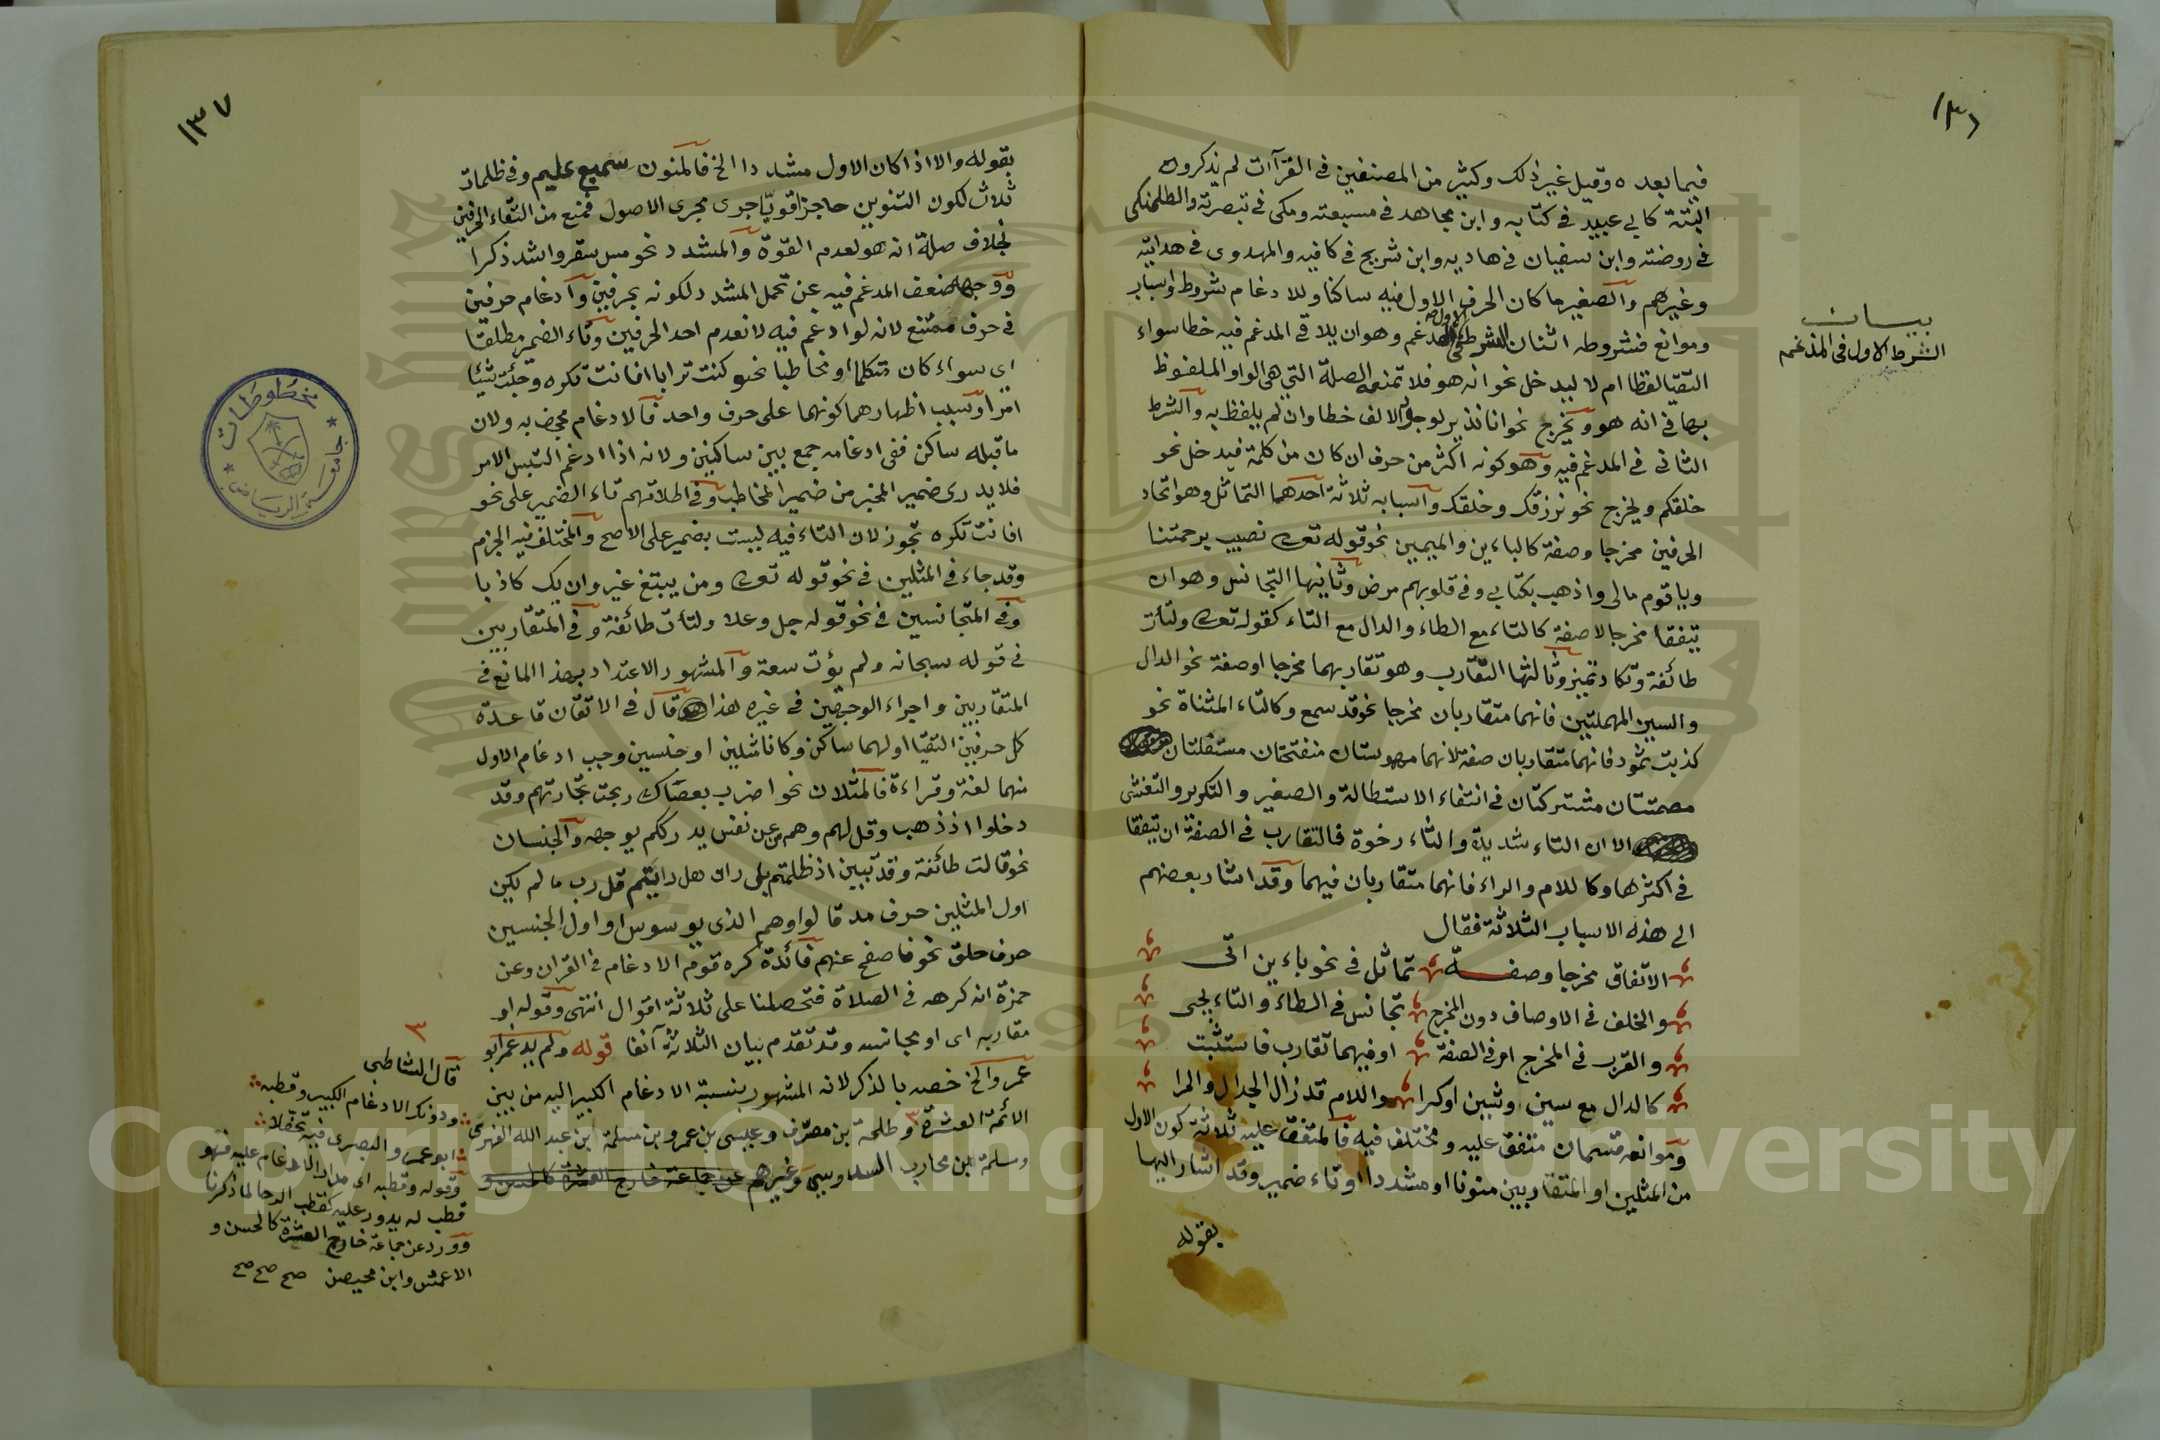 ١٣٦
فيما بعده وقيل غير ذلك وكثير من المصنفين في القرآات لم يذكروه
البتة كابي عبيد في كتابه وابن مجاهد في مسبعته ومكي في تبصرته والطلمنكي
في روضته وابن سفيان في هاديه وابن شريح في كافيه والمهدوي في هدايته
وغيرهم والصغير ما كان الحرف الاول فيه ساكنا وللادغام شروط واسباب
وموانع فشروطه اثنان الشرط الاول في المدغم وهو ان يلاقي المدغم فيه خطا سواء
التقيا لفظا ام لا ليدخل نحو انه هو فلا تمنعه الصلة التي هي الواو الملفوظ
بها في انه هو ويخرج نحو انا نذير لوجود الالف خطا وان لم يلفظ به والشرط
الثاني في المدغم فيه وهو كونه اكثر من حرف ان كان من كلمة فيدخل نحو
خلقكم ويخرج نحو نرزقك وخلقك واسبابه ثلاثة احدهما التماثل وهو اتحاد
الحرفين مخرجا وصفة كالباءين والميمين نحو قوله تعالى نصيب برحمتنا
ويا قوم مالي واذهب بكتابي وفي قلوبهم مرض وثانيها التجانس وهو ان
يتفقا مخرجا لا صفة كالتاء مع الطاء والدال مع التاء كقوله تعالى ولتأت
طائفة وتكاد تميز وثالثها التقارب وهو تقاربهما مخرجا او صفة نحو الدال
والسين المهملتين فانهما متقاربان مخرجا نحو قد سمع وكالتاء المثناة نحو
كذبت ثمود فانهما متقاربان صفة لانهما مهموستان منفتحتان مستفلتان
مصمتتان مشتركتان في انتفاء الاستطالة والصفير والتكرير والتفشي
الا ان التاء شديدة والثاء رخوة فالتقارب في الصفة ان يتفقا
في اكثرها وكاللام والراء فانهما متقاربان فيهما وقد اشار بعضهم
الى هذه الاسباب الثلاثة فقال
الاتفاق مخرجا وصفة تماثل في نحو باءين اتى
والخلف في الاوصاف دون المخرج تجانس في الطاء والتاء يجي
والقرب في المخرج او في الصفة او فيهما تقارب فاستثبت
كالدال مع سين وشين اوكرا واللام قد زال الجدال والمرا
وموانعه قسمان متفق عليه ومختلف فيه فالمتفق عليه ثلاثة كون الاول
من المثلين او المتقاربين منونا او مشددا او تاء ضمير وقد اشار اليها
بقوله
بيان
الشرط الاول في المدغم
١٣٧
بقوله والا اذا كان الاول مشددا الخ فالمنون سميع عليم وفي ظلمات
ثلاث لكون التنوين حاجزا قويا جرى مجرى الاصول فمنع من التقاء الحرفين
بخلاف صلة انه هو لعدم القوة والمشدد نحو مس سقر واشد ذكرا
ووجهه ضعف المدغم فيه عن تحمل المشدد لكونه بحرفين وادغام حرفين
في حرف ممتنع لانه لو ادغم فيه لانعدم احد الحرفين وتاء الضمير مطلقا
اي سواء كان متكلما او مخاطبا نحو كنت ترابا افانت تكره وجئت شيئا
امرا وسبب اظهارهما كونهما على حرف واحد فالادغام مجحف به ولان
ما قبله ساكن ففي ادغامه جمع بين ساكنين ولانه اذا ادغم التبس الامر
فلا يدرى ضمير المخبر من ضمير المخاطب وفي اطلاقهم تاء الضمير على نحو
افانت تكره تجوز لان التاء فيه ليست بضمير على الاصح والمختلف فيه الجزم
وقد جاء في المثلين في نحو قوله تعالى ومن يبتغ غير وان يك كاذبا
وفي المتجانسين في نحو قوله جل وعلا ولتأت طائفة وفي المتقاربين
في قوله سبحانه ولم يؤت سعة والمشهور الاعتداد بهذا المانع في
المتقاربين واجراء الوجهين في غيره هذا قال في الاتقان قاعدة
كل حرفين التقيا اولهما ساكن وكانا مثلين او جنسين وجب ادغام الاول
منهما لغة وقراءة فالمثلان نحو اضرب بعصاك ربحت تجارتهم وقد
دخلوا اذ ذهب وقل لهم وهم من عن نفس يدرككم يوجهه والجنسان
نحو قالت طائفة وقد تبين اذ ظلمتم بل ران هل رايتم قل رب ما لم يكن
اول المثلين حرف مد قالوا وهم الذي يوسوس او اول الجنسين
حرف حلق نحو فاصفح عنهم فائدة كره قوم الادغام في القران وعن
حمزة انه كرهه في الصلاة فتحصلنا على ثلاثة اقوال انتهى وقوله او
مقاربه اي او مجانسه وقد تقدم بيان الثلاثة آنفا قوله ولم يدغم ابو
عمرو الخ خصه بالذكر لانه المشهور بنسبة الادغام الكبير اليه من بين
الائمة العشرة ٣ وطلحة بن مصرف وعيسى بن عمرو بن مسلمة ابن عبد الله الفهري
ومسلمة ابن محارب السدوسي وغيرهم عن جماعة خارج العشرة كالحسن و
٣
قال الشاطبي
ودونك الادغام الكبير وقطبه
ابو عمرو البصري فيه تحفلا
وقوله وقطبه اي مدار الادغام عليه فهو
قطب له يدور عليه كقطب الرحا لما ذكرنا
وورد عن جماعة خارج العشرة كالحسن و
الاعمش وابن محيصن صح صح صح
مخطوطات
جامعة الرياض
Copyright © King Saud University
1957